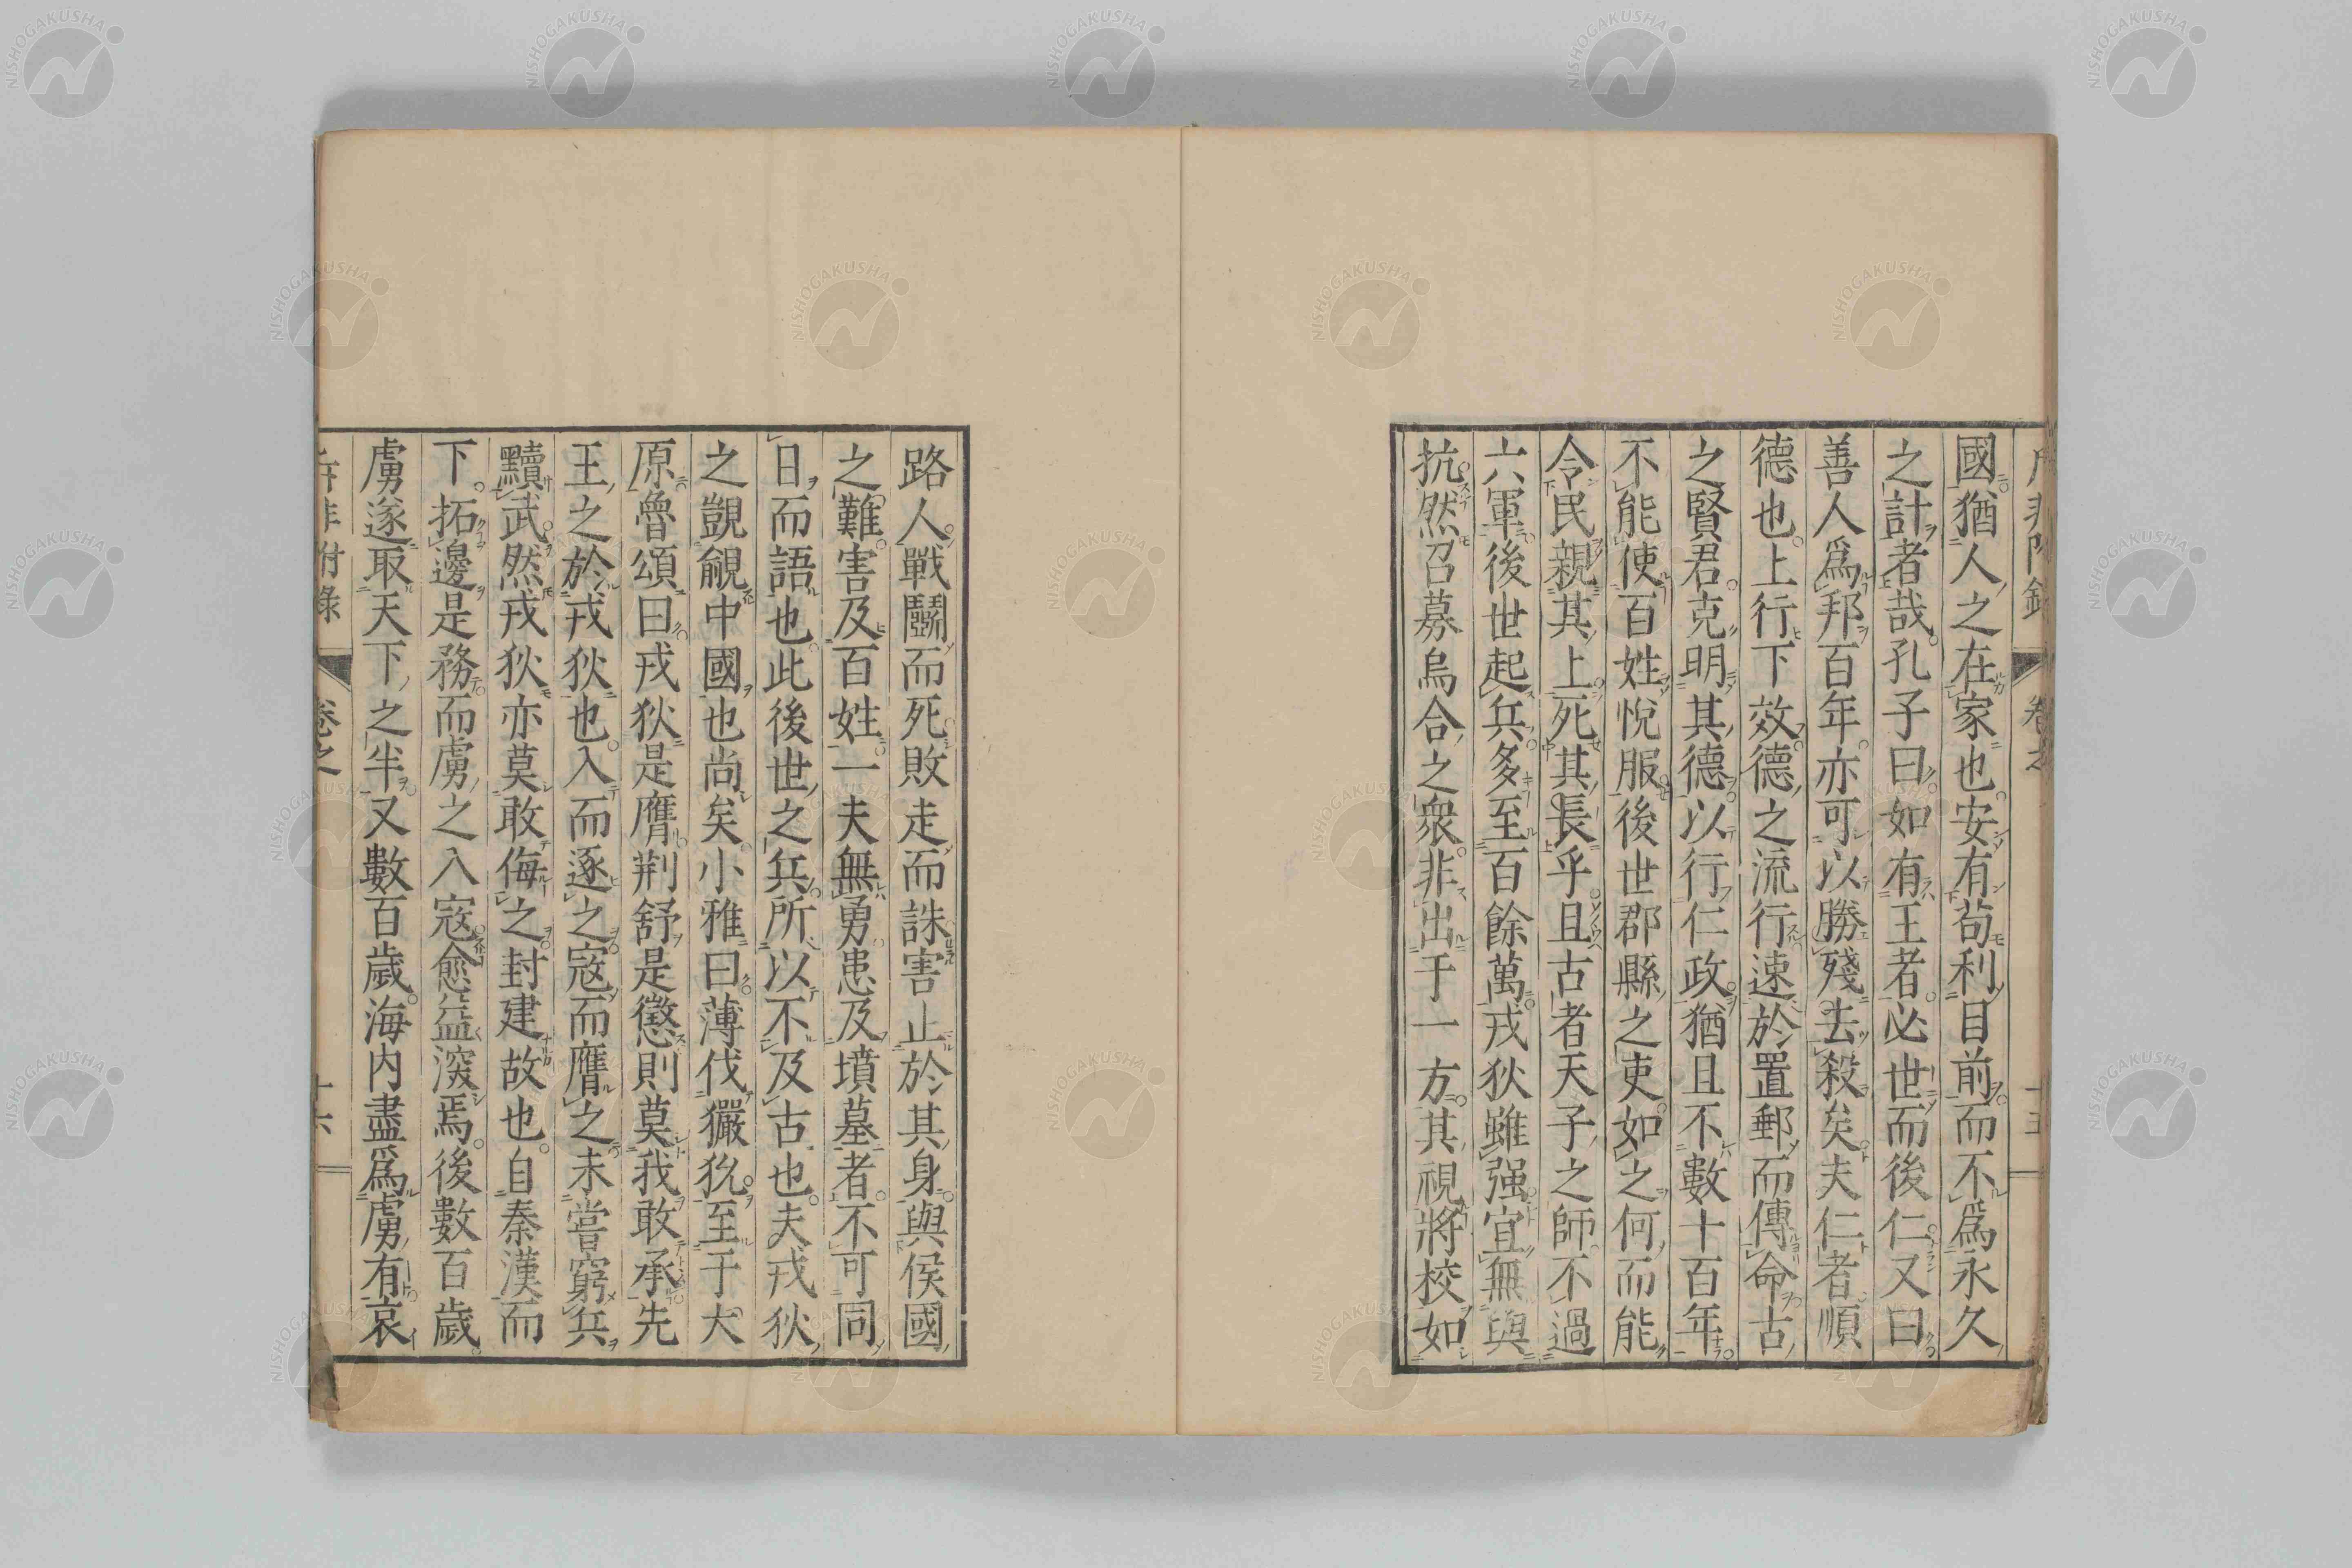 國猶人之在家也安有苟利目前而不爲永久
之計者哉孔子曰如有王者必世而後仁又曰
善人爲邦百年亦可以勝殘去殺矣夫仁者順
德也上行下效德之流行速於置郵而傳命古
之賢君克明其德以行仁政猶且不數十百年
不能使百姓悅服後世郡縣之吏如之何而能
令民親其上死其長乎且古者天子之師不過
六軍後世起兵多至百餘萬戎狄雖强宜無與
抗然召募烏合之衆非出于一方其視將校如
路人戰鬭而死敗走而誅害止於其身與侯國
之難害及百姓一夫無勇患及墳墓者不可同
日而語也此後世之兵所以不及古也夫戎狄
之覬覦中國也尚矣小雅曰薄伐玁狁至于大
原魯頌曰戎狄是膺荆舒是懲則莫我敢承先
王之於戎狄也入而逐之寇而膺之未嘗窮兵
黷武然戎狄亦莫敢侮之封建故也自秦漢而
下拓邊是務而虜之入寇愈益深焉後數百歲
虜遂取天下之半又數百歲海内盡爲虜有哀
附錄
卷之
十六
NISHOGAKUSHA